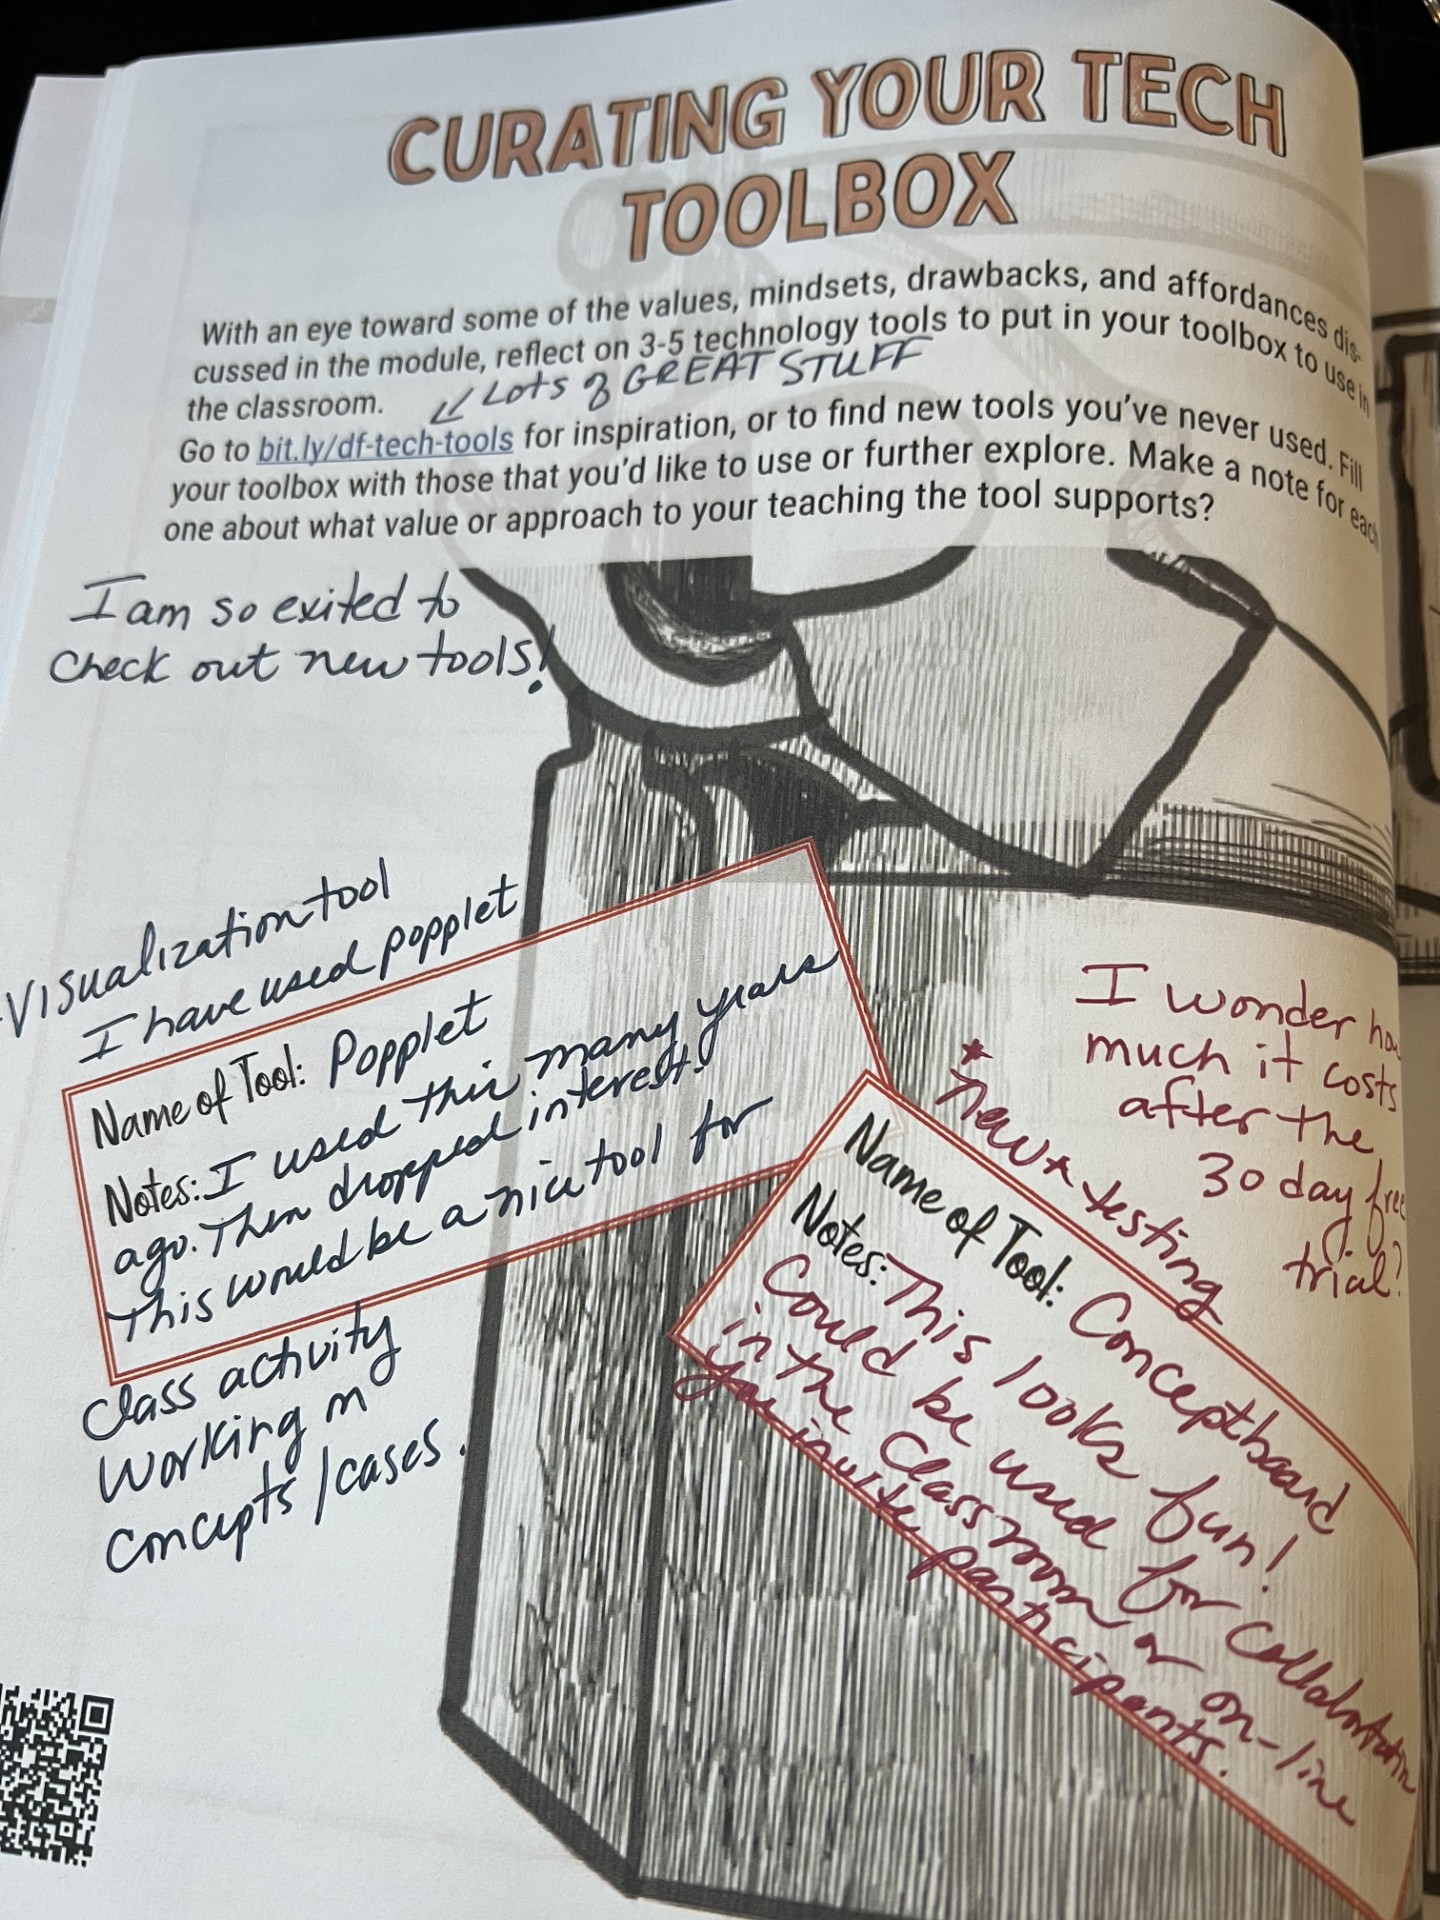 CURATING YOUR TECH
TOOLBOX
With an eye toward some of the values, mindsets, drawbacks, and affordances dis-
cussed in the module, reflect on 3-5 technology tools to put in your toolbox to use in
the classroom.
LOTS of GREAT STUFF
Go to bit.ly/df-tech-tools for inspiration, or to find new tools you've never used. Fill
your toolbox with those that you'd like to use or further explore. Make a note for each
one about what value or approach to your teaching the tool supports?
I am so exited to
check out new tools!
Visualization tool
I have used popplet
Name of Tool: Popplet
Notes: I used this many years
ago. Then dropped interest.
This would be a nice tool for
class activity
working on
concepts/cases.
I wonder how
much it costs
after the
30 day free
trial?
*new* testing
Name of Tool: Conceptboard
Notes: This looks fun!
Could be used for collaboration
in the classroom or on-line
you invite participants.